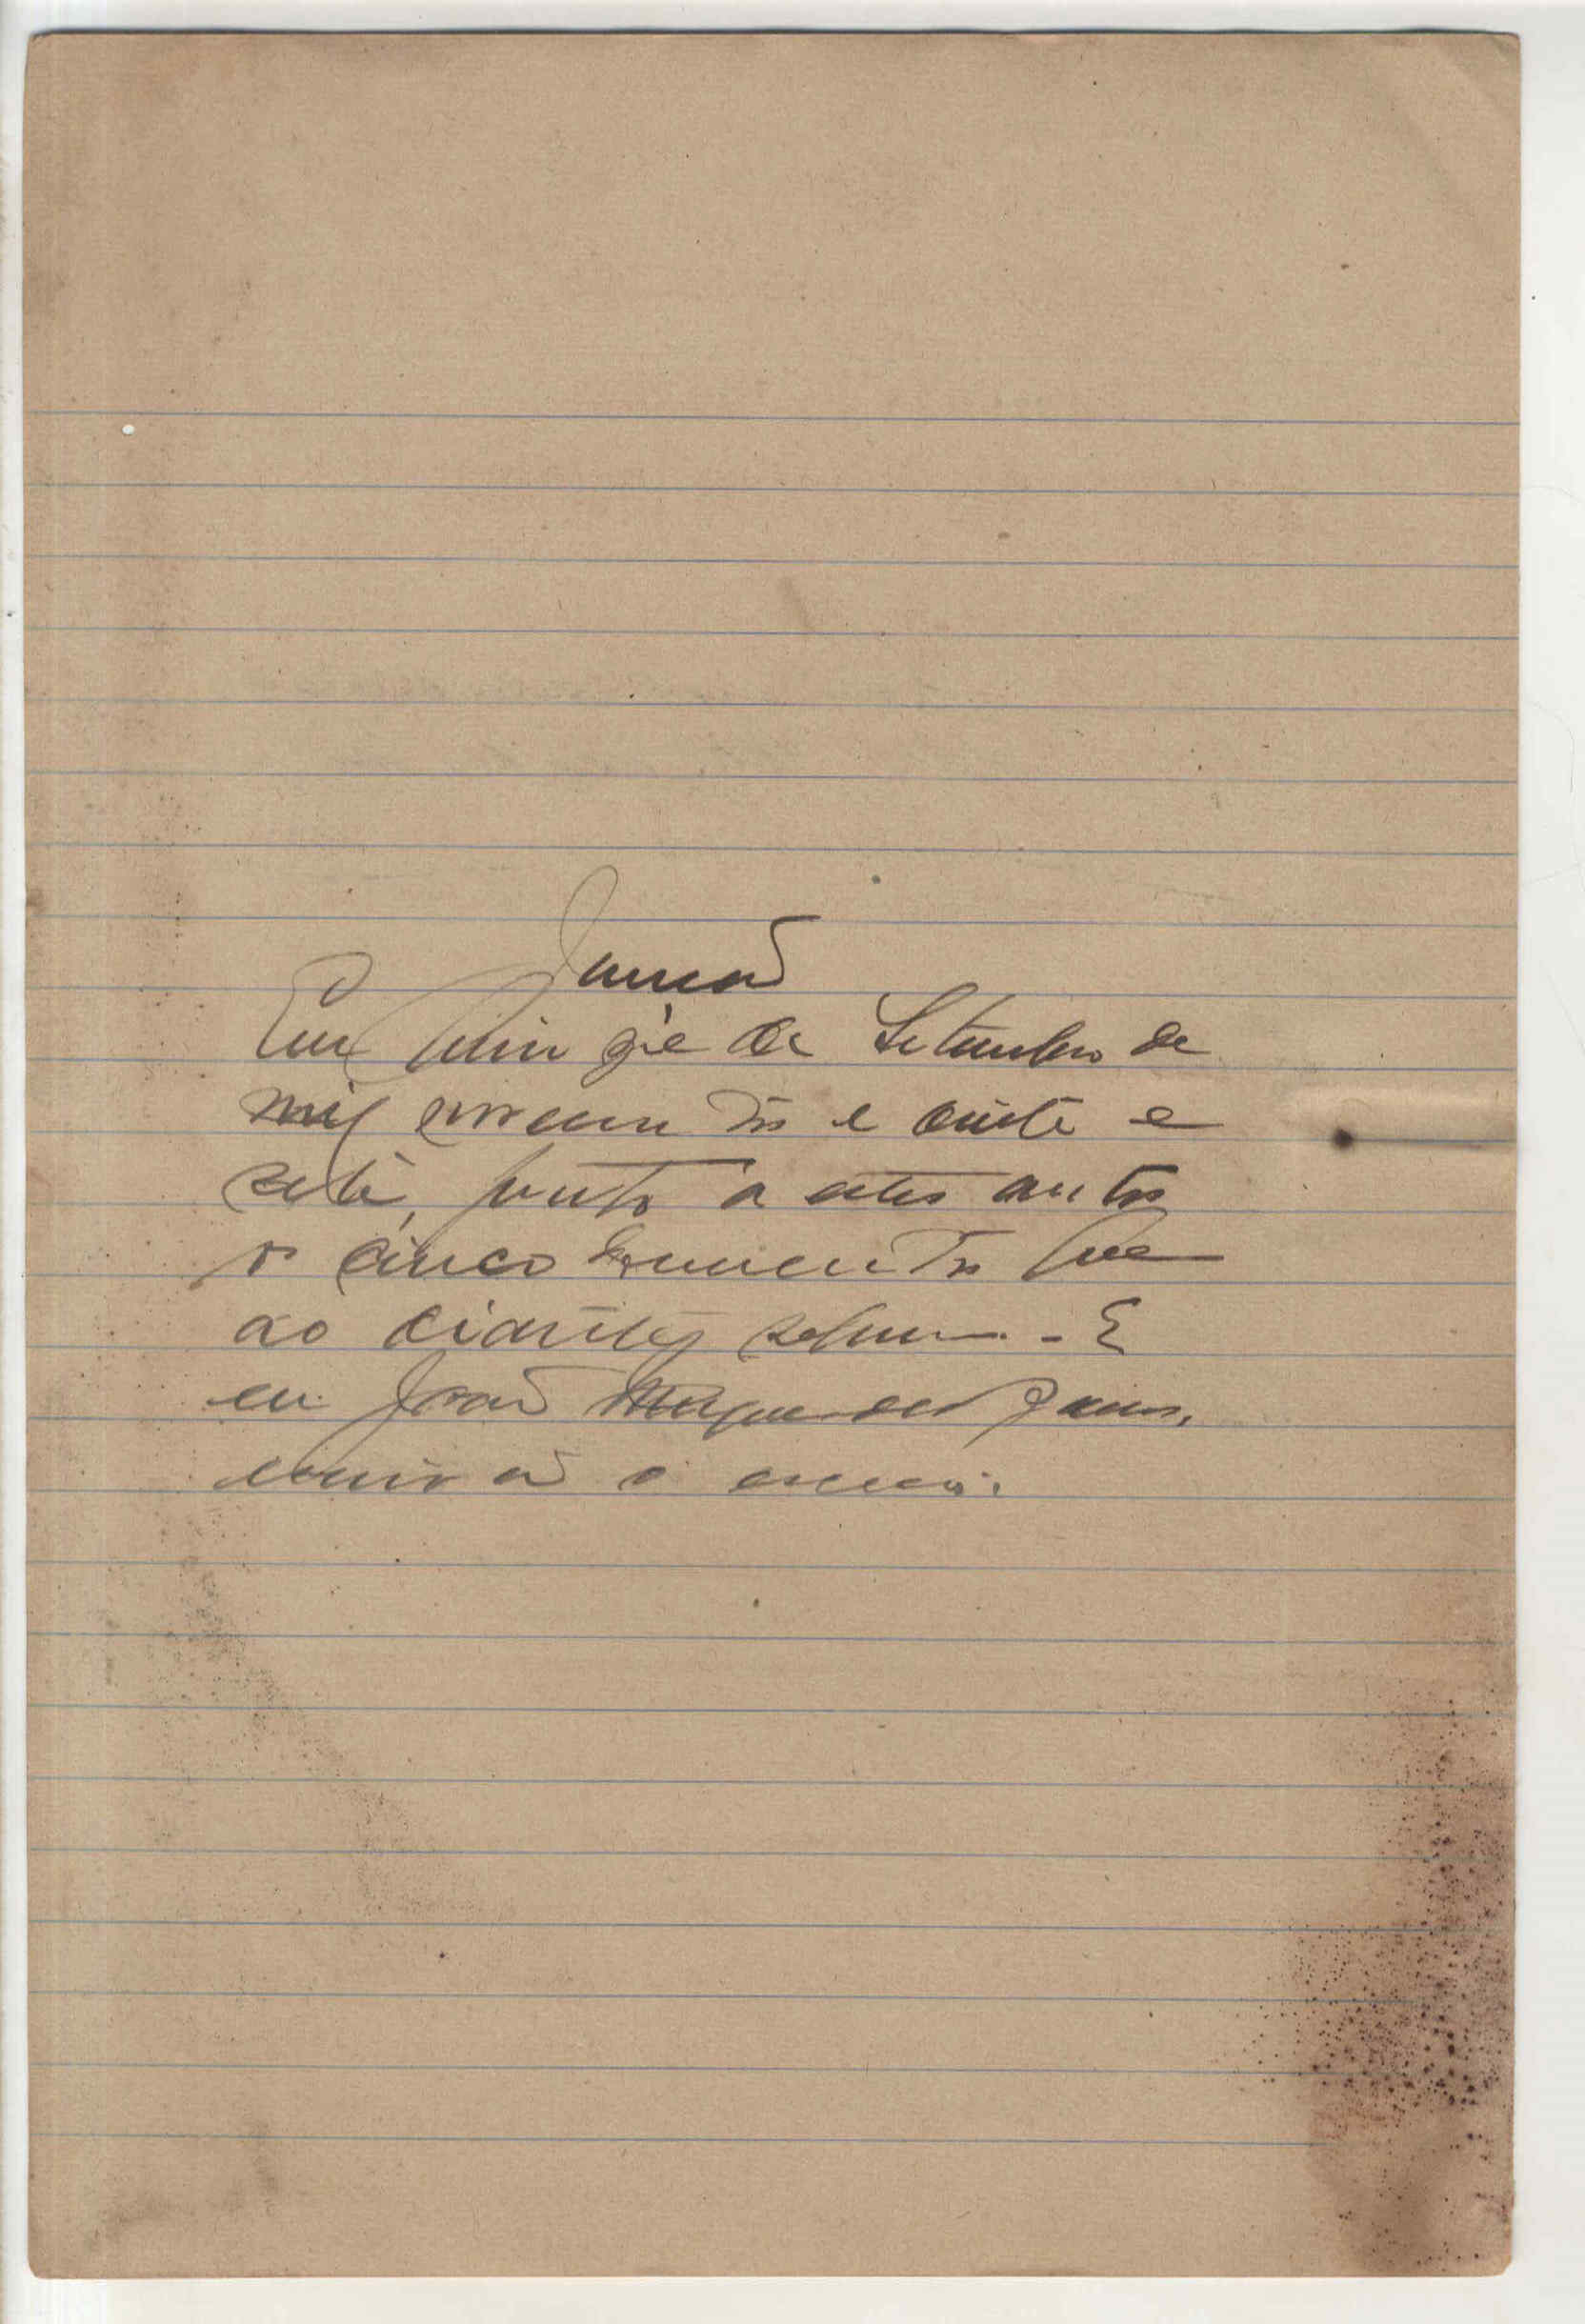 Juncção
Em quinze de Setembro de
mil novecentos e vinte e
sete, junto a estes autos
os cinco documentos que
ao diante se
eu João
escrivão o escrevi.